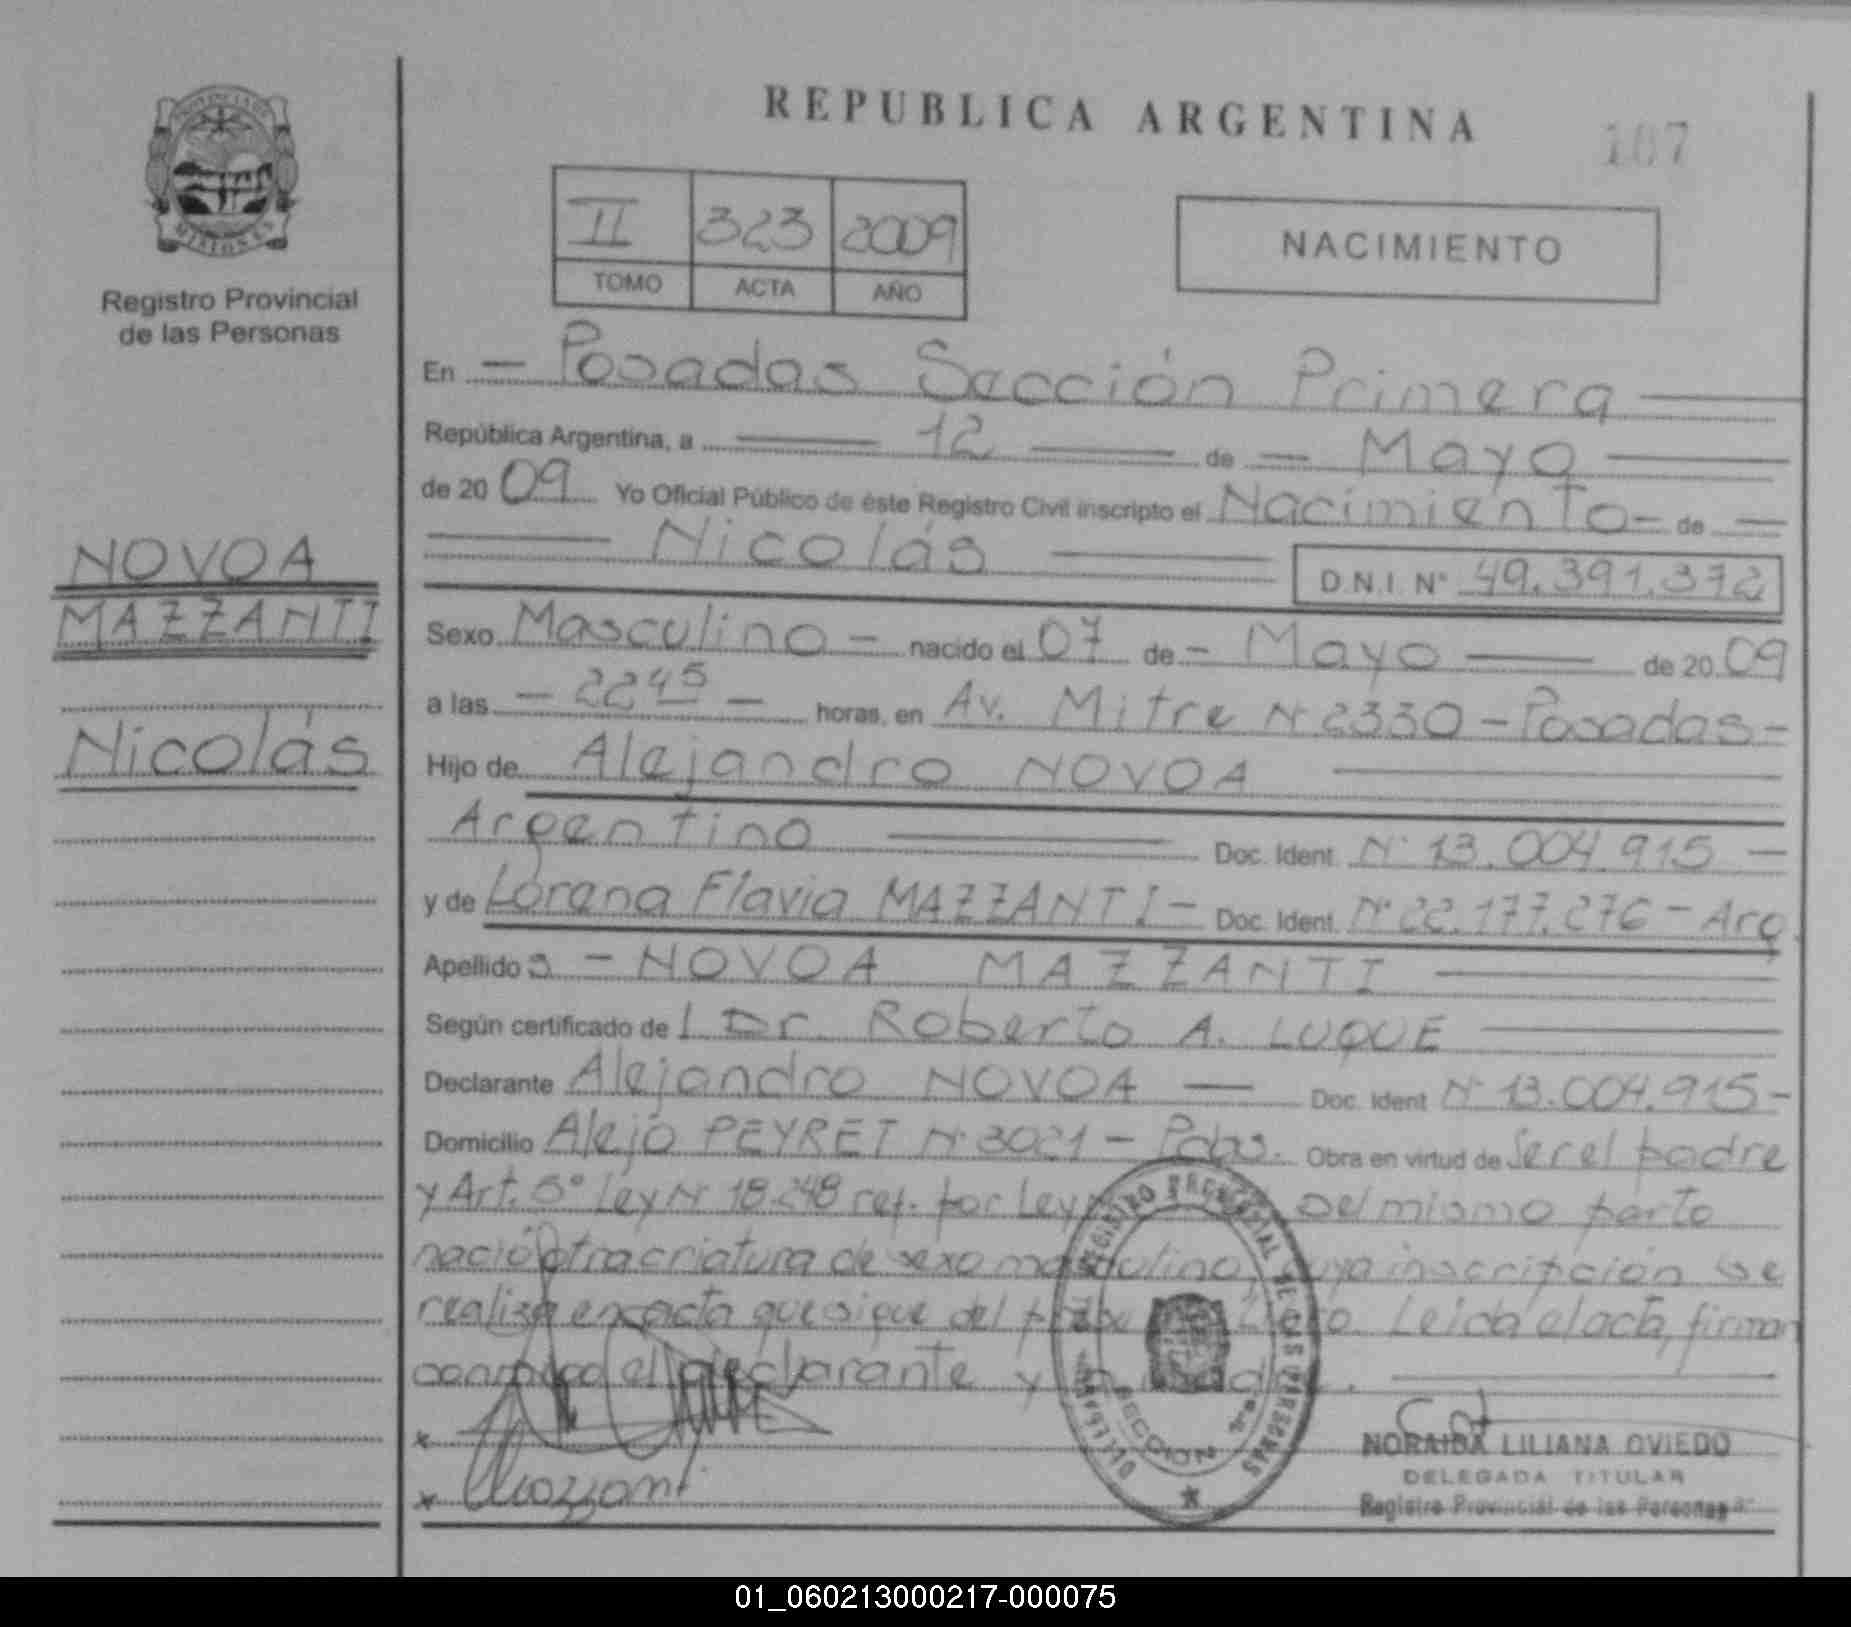 REPUBLICA ARGENTINA
107
PROVINCIA DE
MISIONES
Registro Provincial
de las Personas
II 323 2009
TOMO ACTA AÑO
NACIMIENTO
En Posadas Sección Primera
República Argentina, a 12 de Mayo
de 2009 Yo Oficial Público de éste Registro Civil inscripto el Nacimiento de
Nicolás
D.N.I. N° 49.391.372
NOVOA
MAZZANTI
Nicolás
Sexo Masculino nacido el 07 de Mayo de 2009
a las 22 45 horas, en Av. Mitre N° 2330 - Posadas -
Hijo de Alejandro NOVOA
Argentino Doc. Ident. N° 13.004.915 -
y de Lorena Flavia MAZZANTI - Doc. Ident. N° 22.177.276 - Arg.
Apellidos - NOVOA MAZZANTI
Según certificado del Dr. Roberto A. LUQUE
Declarante Alejandro NOVOA Doc. Ident N° 13.004.915 -
Domicilio Alejo PEYRET N° 3021 - Pdas. Obra en virtud de Ser el padre
y Art. 5° Ley N° 18.248 ref. por Ley Del mismo parto
nació otra criatura de sexo masculino, cuya inscripción se
realiza en acta que sigue del Leida el acta, firman
conmigo el declarante y
REGISTRO PROVINCIAL DE LAS PERSONAS
SECCION 1ra.
Mazzanti
NORAIDA LILIANA OVIEDO
DELEGADA TITULAR
Registro Provincial de las Personas
01_060213000217-000075